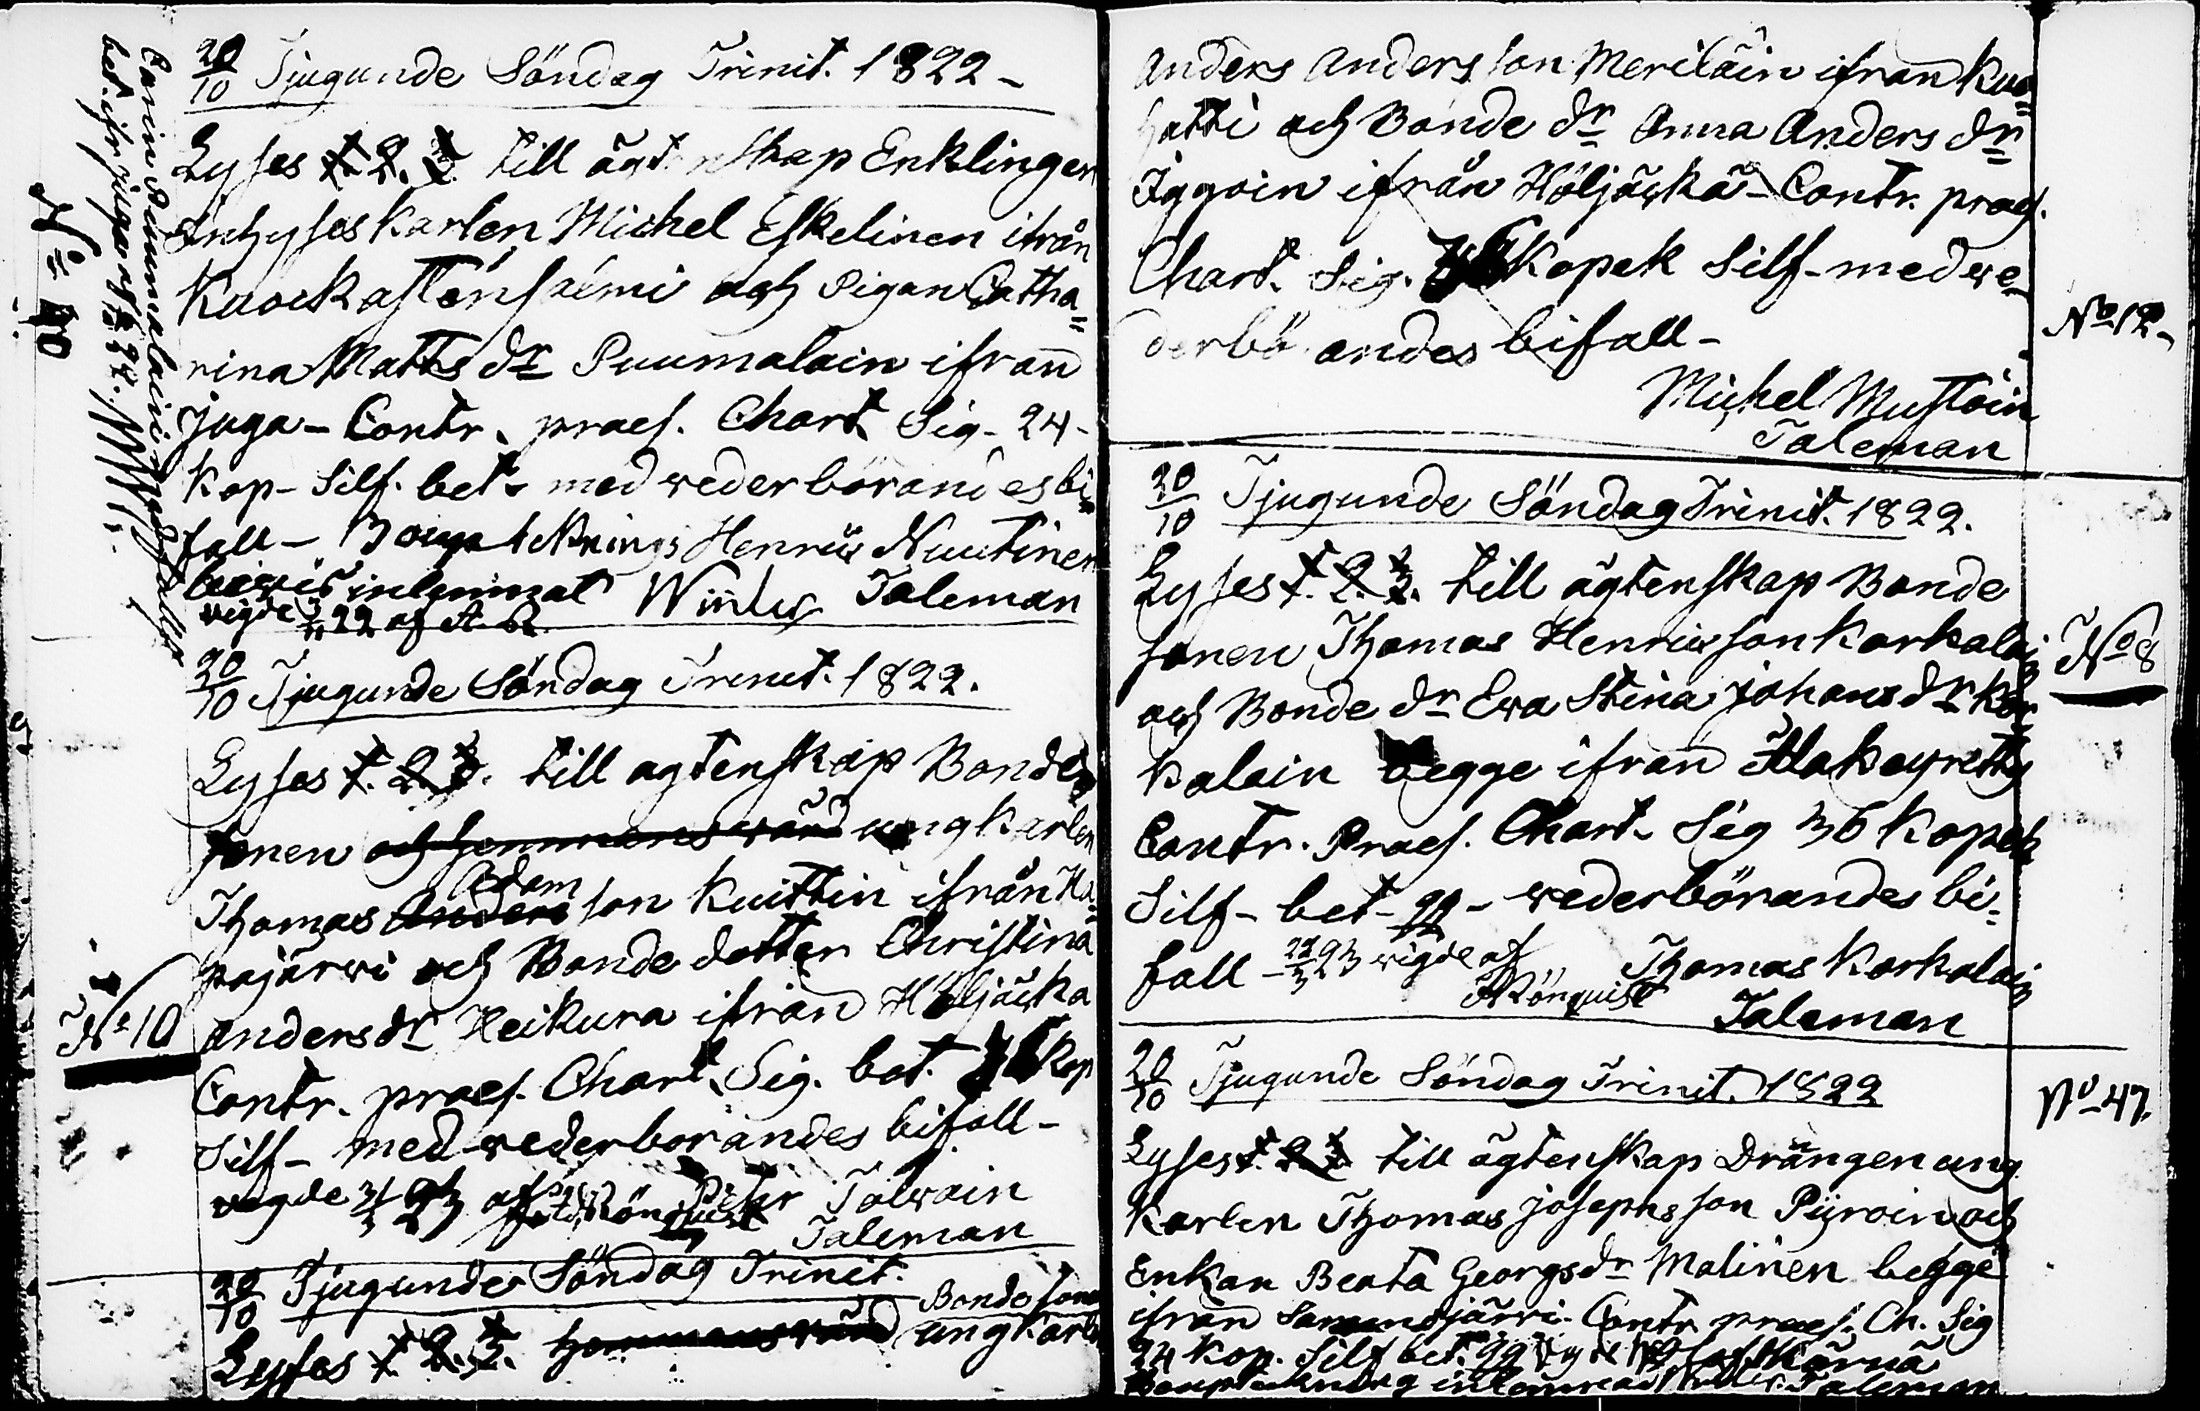 20/10 Tjugunde Söndag Trinit. 1822 -
Lyses 1. 2. 3. till ägtenskap Enklingen
Inhyses Karlen Michel Eskelinen ifrån
och Pigan Catha=
rina Matts dr Puumalain ifrån
Juga - Contr. praes. Chart. Sig - 24 -
Kop - Silf. bet. med wederbörandes bi=
fall - Bouptecknings Henric Nuutinen
bewis inlemnat Taleman
wigde 22 af
No 10
20/10 Tjugunde Söndag Trinit. 1822.
Lyses 1. 2. 3. till ägtenskap Bonde
sonen och hemmanswärd ungkarlen
Thomas Anders Adam son Kuittin ifrån Ha=
pajärwi och Bonde dotter Christina
Anders dr Heikura ifrån Höljäckä
Contr. praes. Chart. Sig. bet. Kop
Silf - med wederbörandes bifall -
wigde 23 af Rönquist Petter Tolwain
Taleman
No 10
20/10 Tjugunde Söndag Trinit.
Lyses 1. 2. 3. hemmanswärd Bonde sonen ungkarlen
Anders Anders son Meriläin ifrån Kuo=
hatti och Bonde dr Anna Anders dr
Iggoin ifrån Höljäckä - Contr. praes.
Chart. Sig. Kopek Silf - med we=
derbörandes bifall -
Michel Mustoin
Taleman
No 12 -
20/10 Tjugunde Söndag Trinit. 1822.
Lyses 1. 2. 3. till ägtenskap Bonde
sonen Thomas Henricsson Korkalain
och Bonde dr Ewa Stina Johans dr Kor
kalain begge ifrån
Contr. Praes. Chart. Sig 36 Kopek
Silf - bet - 22 - wederbörandes bi=
fall - 23 wigde af Rönquist Thomas Korkalain
Taleman
No 8
20/10 Tjugunde Söndag Trinit. 1822
Lyses 1. 2. 3. till ägtenskap Drängen ung
Karlen Thomas Josephs son Piiroin och
Enkan Beata Georgs dr Malinen begge
ifrån Contr. praes. Ch. Sig
24 Kop. Silf bet. 22 Kärnä
Bouptekning inlemnad Taleman
No 47.